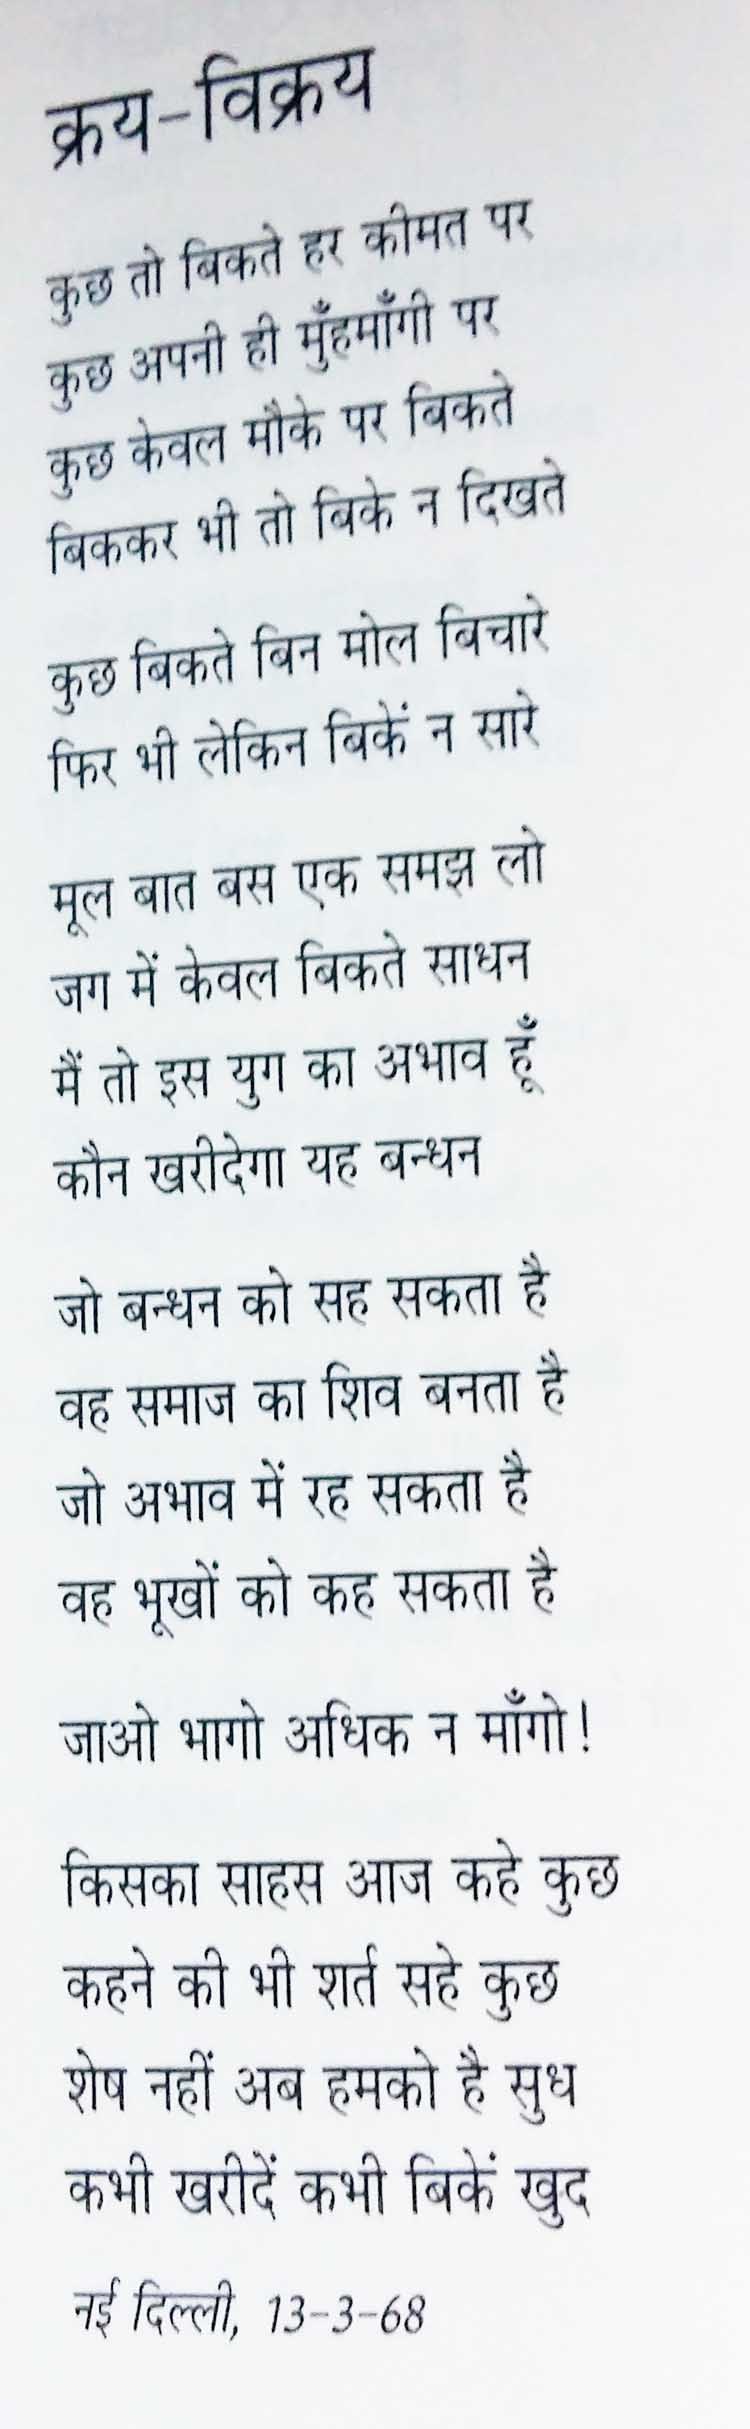 क्रय-विक्रय
कुछ तो बिकते हर कीमत पर
कुछ अपनी ही मुँहमाँगी पर
कुछ केवल मौके पर बिकते
बिककर भी तो बिके न दिखते
कुछ बिकते बिन मोल बिचारे
फिर भी लेकिन बिकें न सारे
मूल बात बस एक समझ लो
जग में केवल बिकते साधन
मैं तो इस युग का अभाव हूँ
कौन खरीदेगा यह बन्धन
जो बन्धन को सह सकता है
वह समाज का शिव बनता है
जो अभाव में रह सकता है
वह भूखों को कह सकता है
जाओ भागो अधिक न माँगो!
किसका साहस आज कहे कुछ
कहने की भी शर्त सहे कुछ
शेष नहीं अब हमको है सुध
कभी खरीदें कभी बिकें खुद
नई दिल्ली, 13-3-68